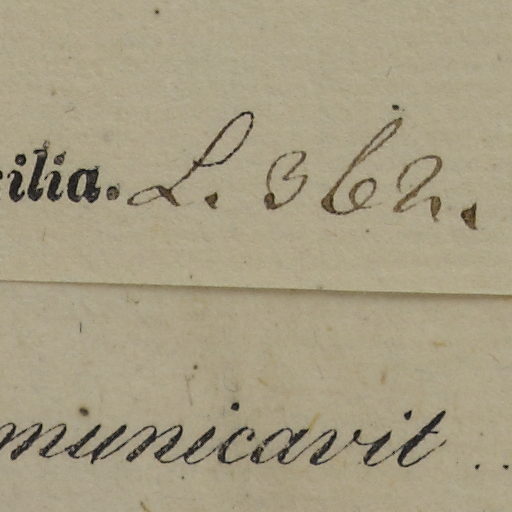 cilia. L. 362.
municavit ..